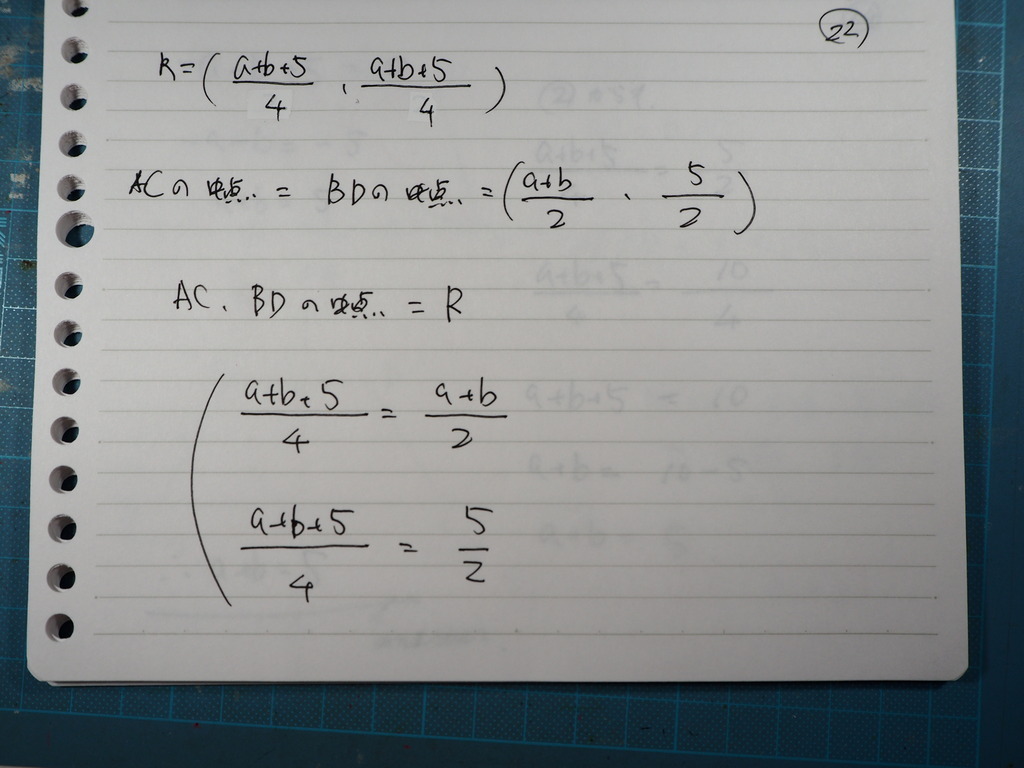 22
R = ( a+b+5 / 4 、 a+b+5 / 4 )
ACの中点 = BDの中点 = ( a+b / 2 、 5 / 2 )
AC、BDの中点 = R
a+b+5 / 4 = a+b / 2
a+b+5 / 4 = 5 / 2